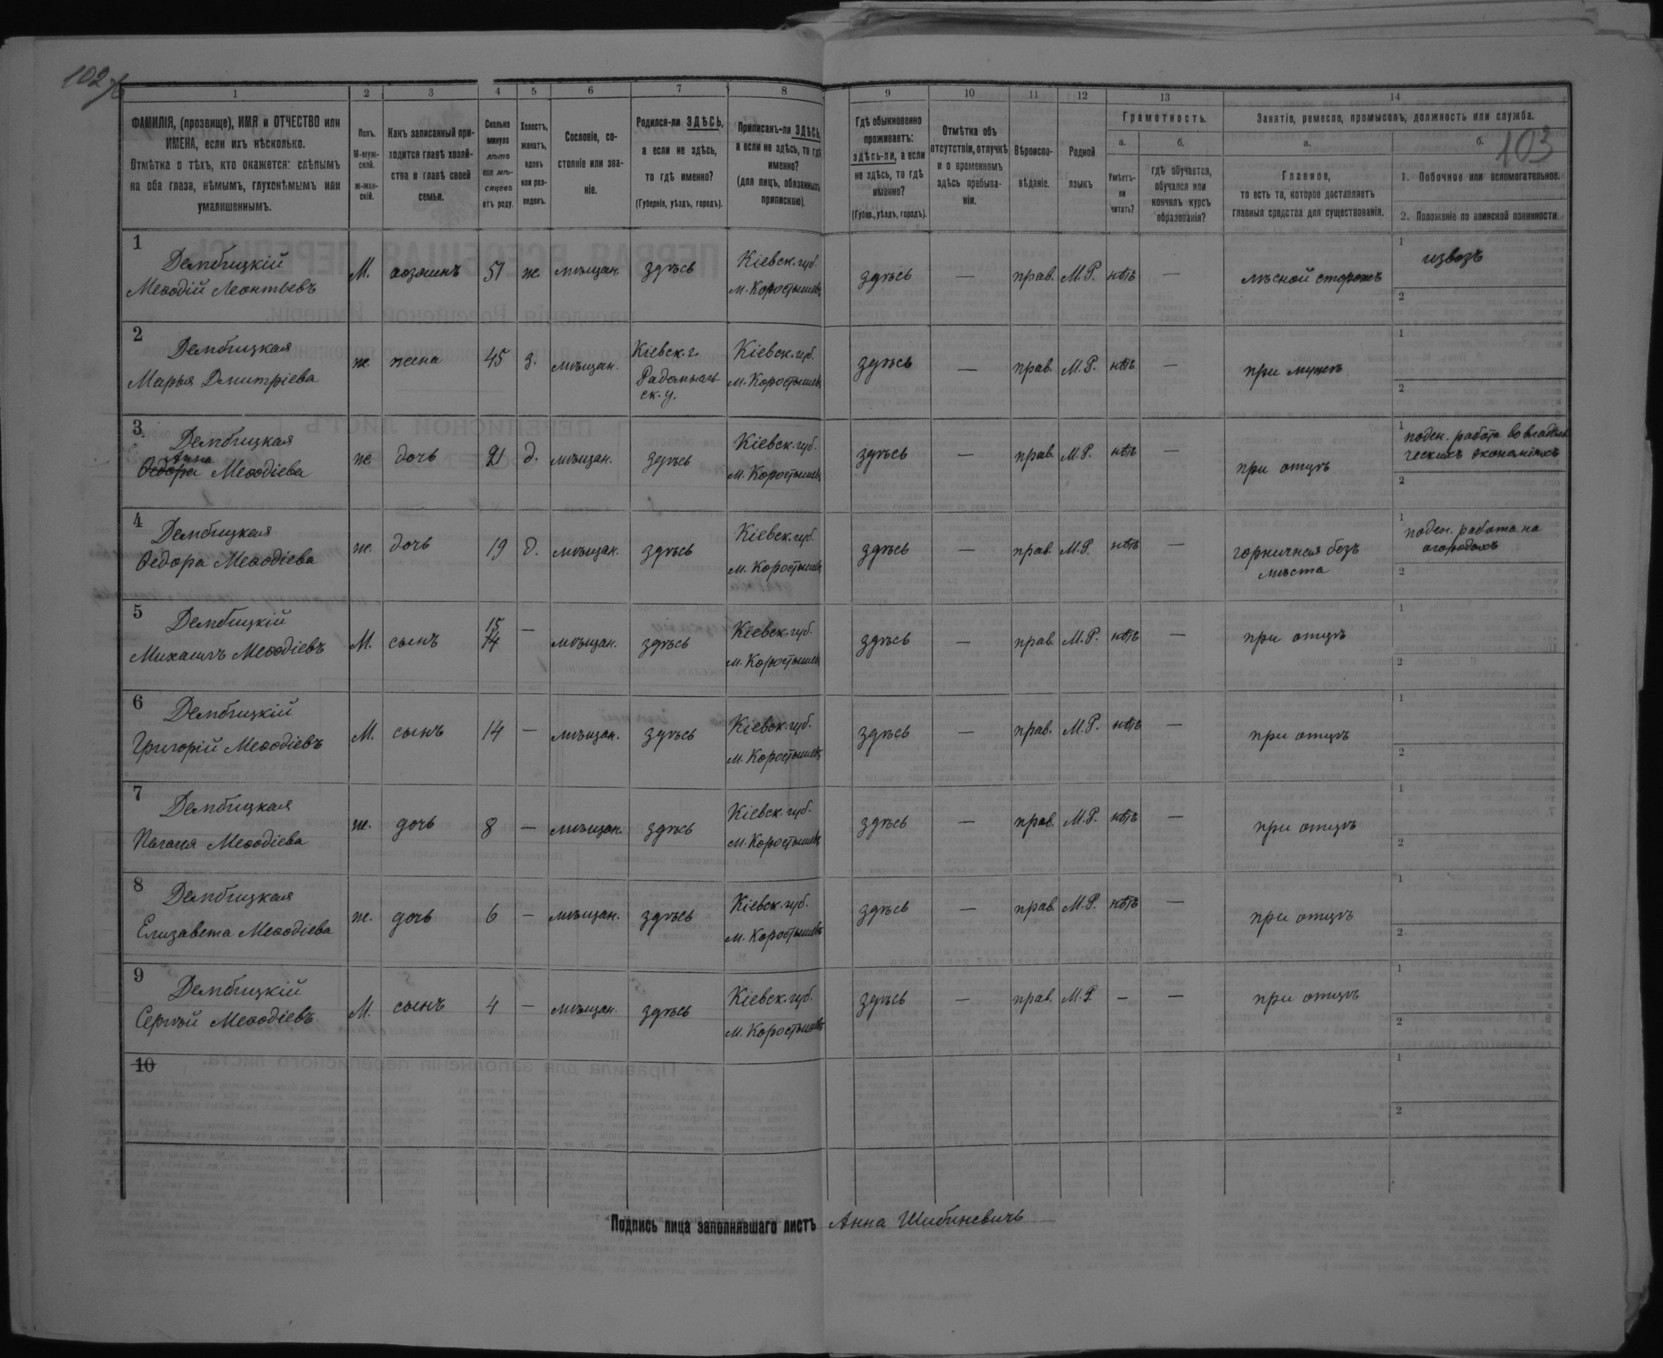 102 об
103
1 2 3 4 5 6 7 8 9 10 11 12 13 14
ФАМИЛІЯ, (прозвище), ИМЯ и ОТЧЕСТВО или ИМЕНА, если ихъ нѣсколько.
Отмѣтка о тѣхъ, кто окажется: слѣпымъ на оба глаза, нѣмымъ, глухонѣмымъ или умалишеннымъ.
Полъ.
М-мужской.
ж-женскій.
Какъ записанный приходится главѣ хозяйства и главѣ своей семьи.
Сколько минуло лѣтъ или мѣсяцевъ отъ роду.
Холостъ, женатъ, вдовъ или разведенъ.
Сословіе, состояніе или званіе.
Родился-ли ЗДѢСЬ, а если не здѣсь, то гдѣ именно?
(Губернія, уѣздъ, городъ).
Приписанъ-ли ЗДѢСЬ, а если не здѣсь, то гдѣ именно?
(для лицъ, обязанныхъ припискою).
Гдѣ обыкновенно проживаетъ: здѣсь-ли, а если не здѣсь, то гдѣ именно?
(Губер., уѣздъ, городъ).
Отмѣтка объ отсутствіи, отлучкѣ и о временномъ здѣсь пребываніи.
Вѣроисповѣданіе.
Родной языкъ
Грамотность.
а.
Умѣетъ-ли читать?
б.
гдѣ обучается, обучался или кончилъ курсъ образованія?
Занятіе, ремесло, промыселъ, должность или служба.
а.
Главное,
то есть то, которое доставляетъ главныя средства для существованія.
б.
1. Побочное или вспомогательное.
2. Положеніе по воинской повинности
1 Дембицкій Меѳодій Леонтьевъ М. хозяинъ 51 ж. мѣщан. здѣсь Кіевск. губ. м. Коростышев здѣсь — прав. М.Р. нѣтъ — лѣсной сторожъ 1 извозъ 2
2 Дембицкая Марья Дмитріева ж жена 45 з. мѣщан. Кіевск. г. Радомысльск. у. Кіевск. губ. м. Коростышев здѣсь — прав. М.Р. нѣтъ — при мужѣ 1 2
3 Дембицкая Ѳедора Анна Меѳодіева ж дочь 21 д. мѣщан. здѣсь Кіевск. губ. м. Коростышев здѣсь — прав. М.Р. нѣтъ — при отцѣ 1 поден. работа во владѣльческихъ экономіяхъ 2
4 Дембицкая Ѳедора Меѳодіева ж. дочь 19 д. мѣщан. здѣсь Кіевск. губ. м. Коростышев здѣсь — прав. М.Р. нѣтъ — горничная безъ мѣста 1 поден. работа на огородахъ 2
5 Дембицкій Михаилъ Меѳодіевъ М. сынъ 15 14 — мѣщан. здѣсь Кіевск. губ. м. Коростышев здѣсь — прав. М.Р. нѣтъ — при отцѣ 1 2
6 Дембицкій Григорій Меѳодіевъ М. сынъ 14 — мѣщан. здѣсь Кіевск. губ. м. Коростышев здѣсь — прав. М.Р. нѣтъ — при отцѣ 1 2
7 Дембицкая Пелагея Меѳодіева ж. дочь 8 — мѣщан. здѣсь Кіевск. губ. м. Коростышев здѣсь — прав. М.Р. нѣтъ — при отцѣ 1 2
8 Дембицкая Елизавета Меѳодіева ж. дочь 6 — мѣщан. здѣсь Кіевск. губ. м. Коростышев здѣсь — прав. М.Р. нѣтъ — при отцѣ 1 2
9 Дембицкій Сергѣй Меѳодіевъ М. сынъ 4 — мѣщан. здѣсь Кіевск. губ. м. Коростышев здѣсь — прав. М.Р — — при отцѣ 1 2
10 1 2
Подпись лица заполнявшаго листъ Анна Шибиневичъ